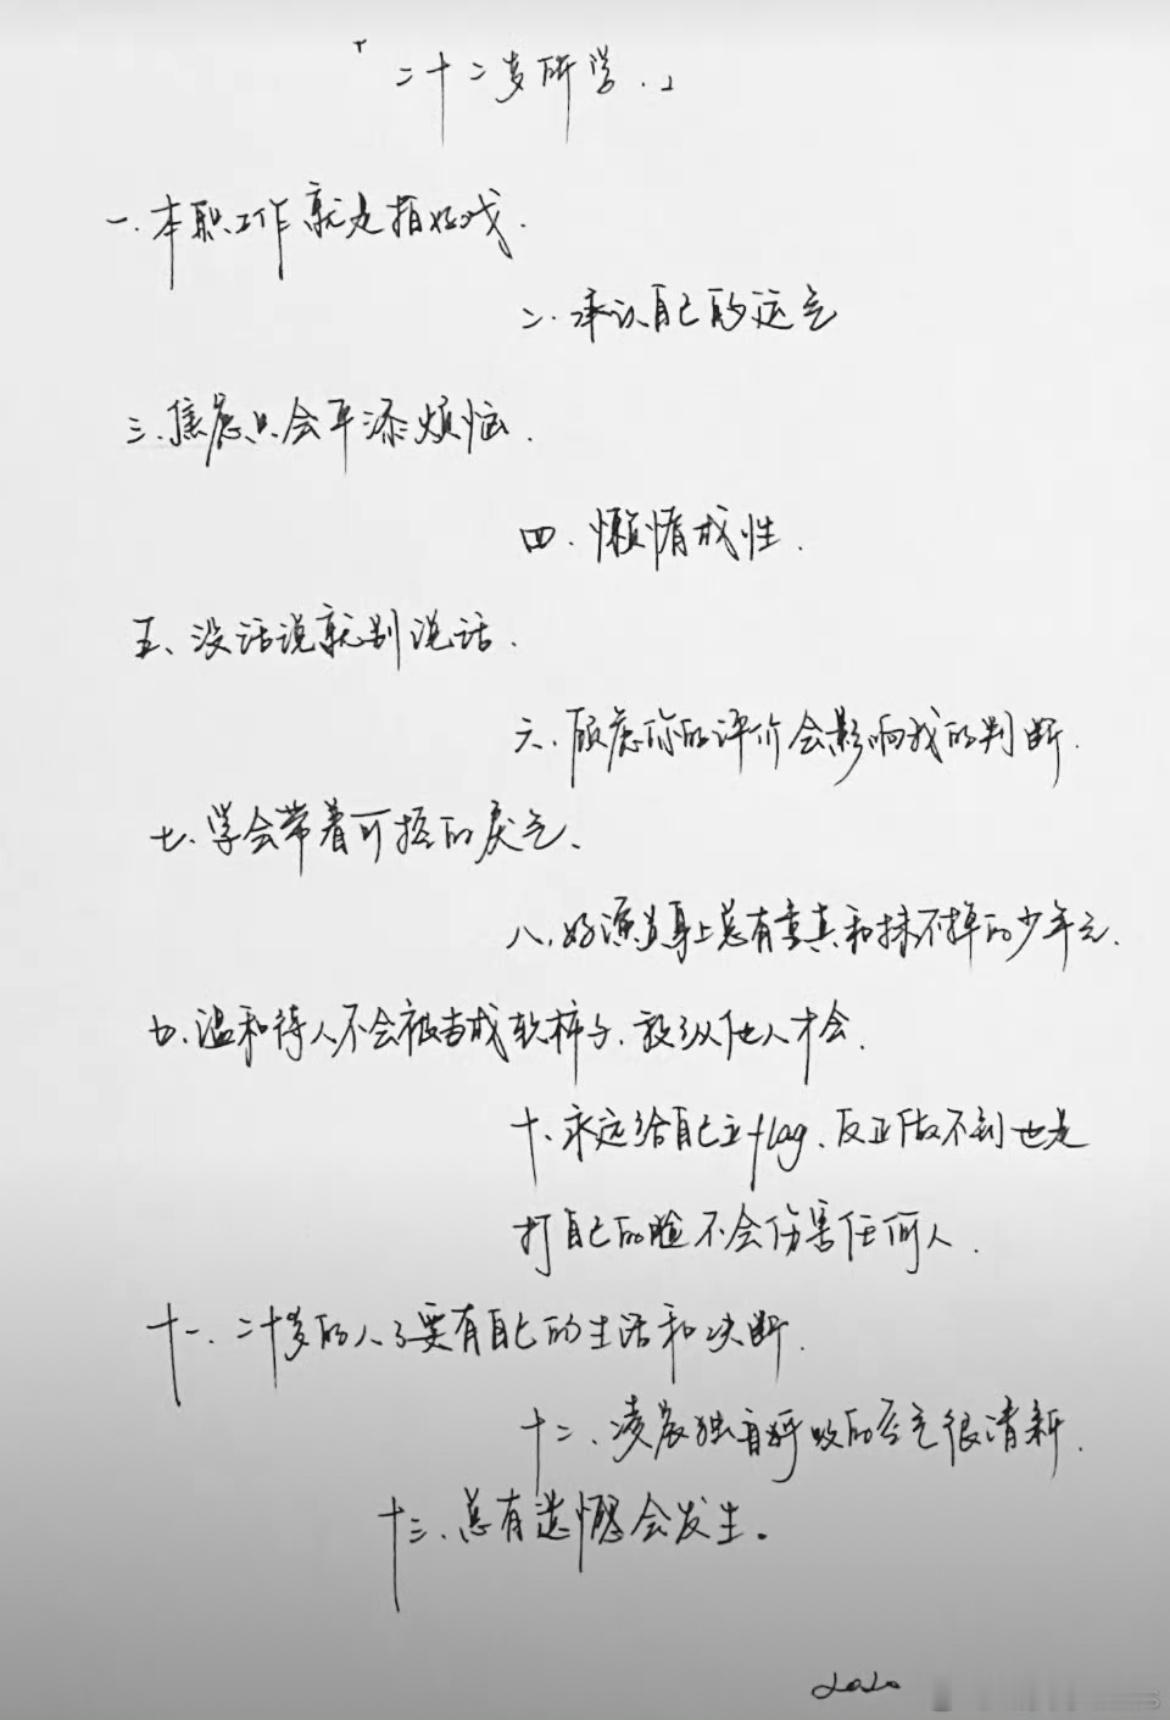 「二十二岁所学.」
一.本职工作就是拍好戏.
二.承认自己的运气
三.焦虑只会平添烦恼.
四.懒惰成性.
五、没话说就别说话.
六.顾虑你的评价会影响我的判断.
七.学会带着可控的戾气、
八.好演员身上总有童真和抹不掉的少年气.
九.温和待人不会被当成软柿子.放纵他人才会.
十、永远给自己立flag、反正做不到也是
打自己的脸不会伤害任何人.
十一.二十岁的人了要有自己的生活和决断.
十二、凌晨独自呼吸的空气很清新.
十三、总有遗憾会发生。
2020